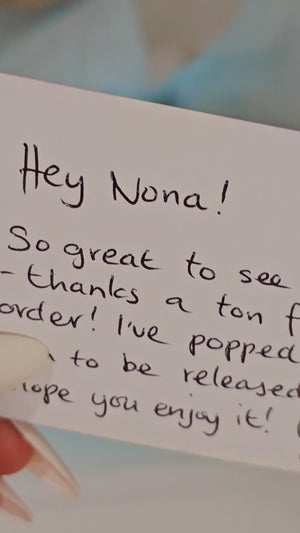 Hey Nona!
So great to see
- thanks a ton f
order! I've popped
to be released
hope you enjoy it!